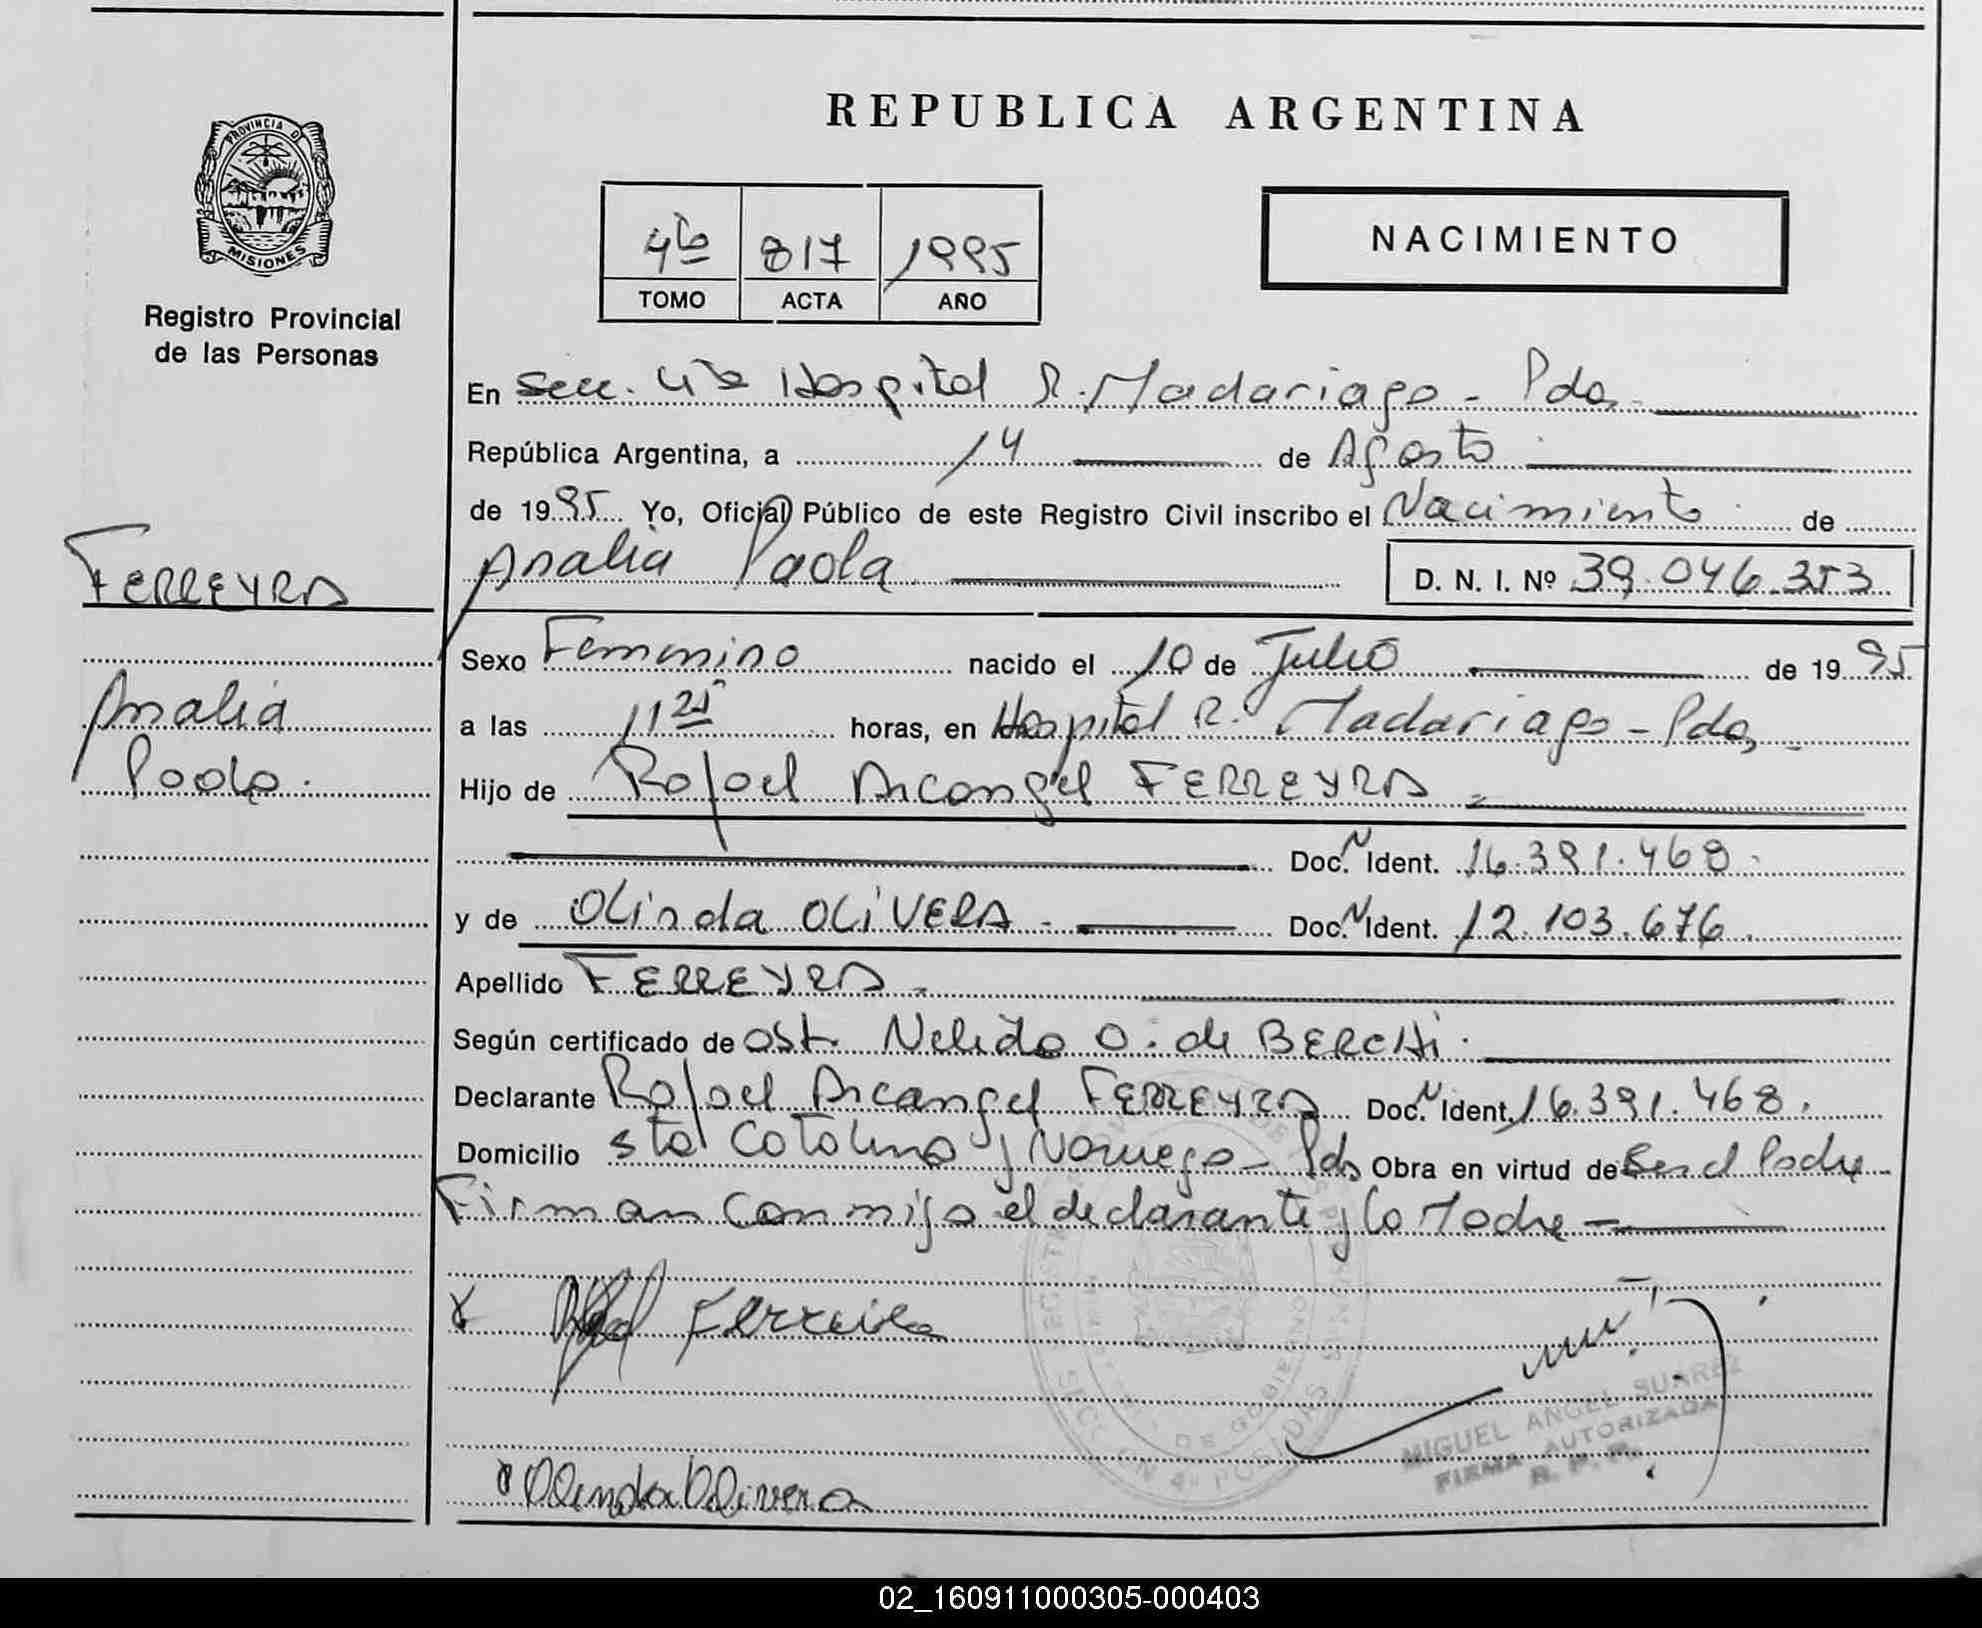 REPUBLICA ARGENTINA
PROVINCIA D MISIONES
Registro Provincial
de las Personas
4ta 817 1995
TOMO ACTA AÑO
NACIMIENTO
En Secc. 4ta Hospital R. Madariaga - Pdas
República Argentina, a 14 de Agosto
de 1995 Yo, Oficial Público de este Registro Civil inscribo el Nacimiento de
Analia Paola D. N. I. Nº 39.046.353
FERREYRA
Analia
Paola.
Sexo Femenino nacido el 10 de Julio de 1995
a las 11 25 horas, en Hospital R. Madariaga - Pdas
Hijo de Rafael Arcangel FERREYRA
Doc. N Ident. 16.391.468.
y de Olinda OLIVERA - Doc. N Ident. 12.103.676.
Apellido FERREYRA.
Según certificado de Obst. Nelida O. de BERCHI.
Declarante Rafael Arcangel FERREYRA Doc. N Ident. 16.391.468.
Domicilio Sta Catalina y Noruega - Pdas Obra en virtud de Ser el Padre
Firman conmigo el declarante y la Madre -
x Ferreira
Olinda Olivera
MIGUEL ANGEL SUAREZ
FIRMA AUTORIZADA
R. P. P.
02_160911000305-000403